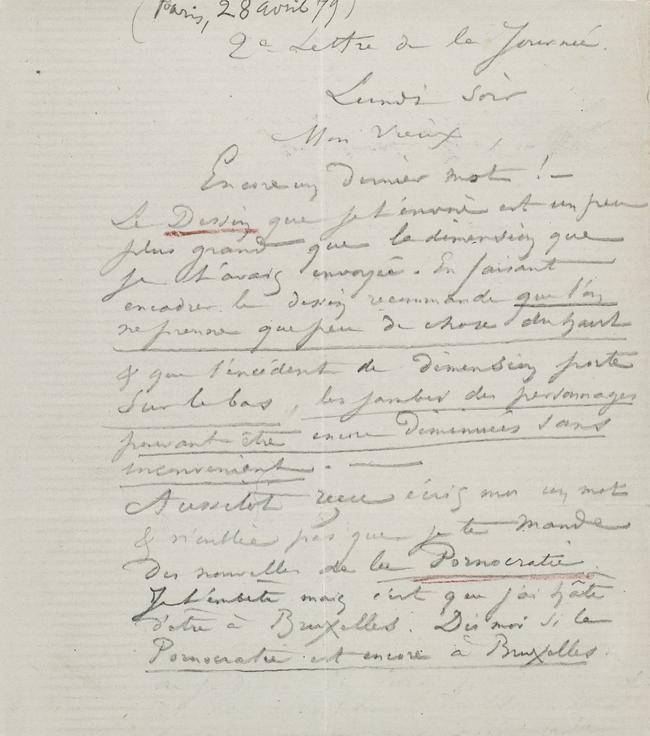 (Paris, 28 avril 79)
2e Lettre de la Journée.
Lundi Soir
Mon Vieux,
Encore un dernier mot ! —
Le Dessin que je t'envoie est un peu
plus grand que la dimension que
je t'avais envoyée. En faisant
encadrer le dessin recommande que l'on
ne prenne que peu de chose du haut
& que l'excédent de dimension porte
Sur le bas, les jambes des personnages
pouvant être encore diminuées sans
inconvenient. —
Aussitot reçu écris moi un mot
& n'oublie pas que je te demande
des nouvelles de la Pornocratie
Je t'embête mais c'est que j'ai hâte
d'etre à Bruxelles. Dis moi si la
Pornocratie est encore à Bruxelles.